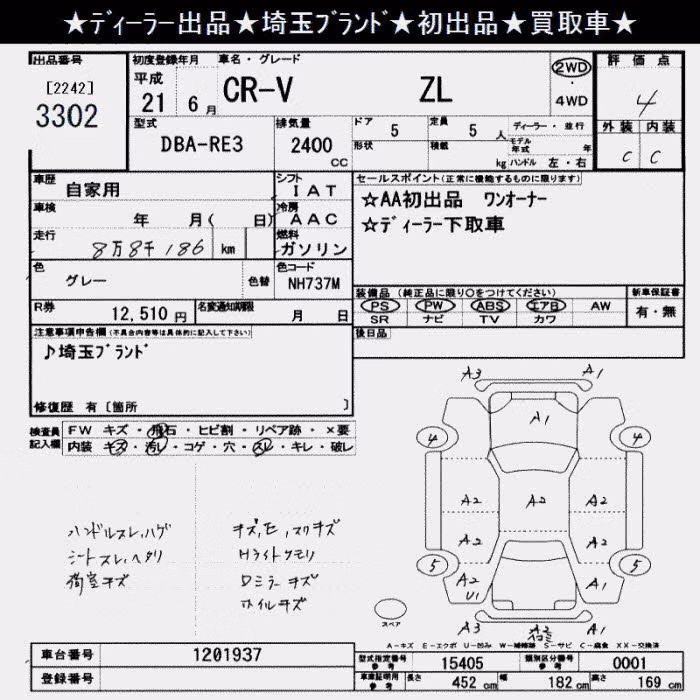 ★ディーラー出品★埼玉ブランド★初出品★買取車★
出品番号
[2242]
3302
初度登録年月 車名・グレード
平成
21 6月 CR-V ZL
2WD
・
4WD
評価点
4
外装 内装
C C
型式
DBA-RE3
排気量
2400
CC
ドア 5
形状
定員 5 人
積載 kg
ディーラー・並行
モデル年式 年
ハンドル 左・右
車歴 自家用
シフト
I A T
車検 年 月( 日)
冷房
A A C
走行 8万8千186 km
燃料
ガソリン
色 グレー 色替
色コード
NH737M
R券 12,510 円
名変通知期限 月 日
セールスポイント(正常に機能するものに限ります)
☆AA初出品 ワンオーナー
☆ディーラー下取車
装備品(純正品に限り○をつけてください)
PS PW ABS エアB AW
SR ナビ TV カワ
新車保証書
有・無
後日品
注意事項申告欄(不具合内容等は具体的に記入して下さい)
♪埼玉ブランド
修復歴 有[箇所 ]
検査員記入欄
FW キズ・飛石・ヒビ割・リペア跡・×要
内装 キズ・汚レ・コゲ・穴・スレ・キレ・破レ
ハンドルスレ,ハゲ
シートスレ,ヘタリ
荷室キズ
Hライトクモリ
Dミラーキズ
ホイルキズ
A3 A1
A1
4 4
A2 A2 A2
A2 A2
5 5
A2 U1 A1
A3 A2 A1
スペア
A－キズ E－エクボ U－凹み W－補修跡 S－サビ C－腐食 XX－交換済
車台番号 1201937
登録番号
型式指定番号 参考 15405
類別区分番号 参考 0001
車庫証明用 参考 長さ 452 cm 幅 182 cm 高さ 169 cm